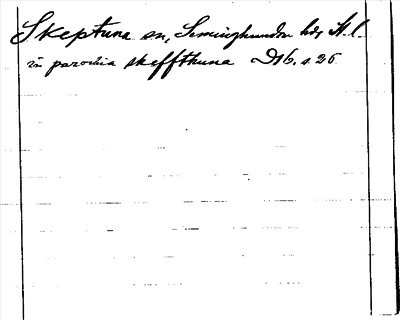 Skeptuna sn, Seminghundra hd, A.l.
in parochia skeffthuna D16. s. 26